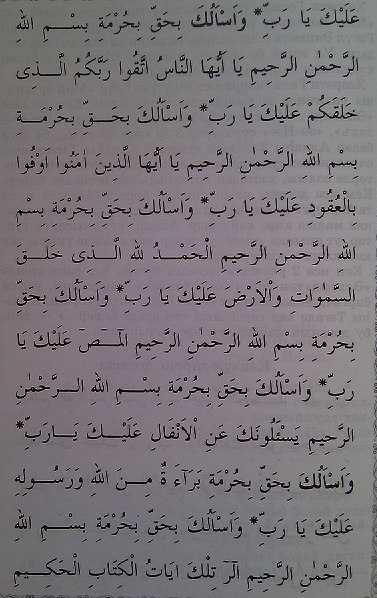 عَلَيْكَ يَا رَبِّ * وَاَسْاَلُكَ بِحَقِّ بِحُرْمَةِ بِسْـمِ اللهِ
الرَّحْمٰنِ الرَّحِيمِ يَا اَيُّهَا النَّاسُ اتَّقُوا رَبَّكُمُ الَّـذِى
خَلَقَكُمْ عَلَيْكَ يَا رَبِّ * وَاَسْاَلُكَ بِحَـقِّ بِحُرْمَـةِ
بِسْمِ اللهِ الرَّحْمٰنِ الرَّحِيمِ يَا اَيُّهَا الَّذِينَ اٰمَنُوا اَوْفُوا
بِالْعُقُودِ عَلَيْكَ يَا رَبِّ * وَاَسْاَلُكَ بِحَقِّ بِحُرْمَةِ بِسْمِ
اللهِ الرَّحْمٰنِ الرَّحِيمِ الْحَمْـدُ لِلهِ الَّـذِى خَلَـقَ
السَّمٰوَاتِ وَالْاَرْضَ عَلَيْكَ يَا رَبِّ * وَاَسْاَلُكَ بِحَقِّ
بِحُرْمَةِ بِسْمِ اللهِ الرَّحْمٰنِ الرَّحِيمِ الٓمٓـصٓ عَلَيْكَ يَا
رَبِّ * وَاَسْاَلُكَ بِحَقِّ بِحُرْمَةِ بِسْـمِ اللهِ الـرَّحْمٰنِ
الرَّحِيمِ يَسْئَلُونَكَ عَنِ الْاَنْفَالِ عَلَيْـكَ يَـارَبِّ *
وَاَسْاَلُكَ بِحَقِّ بِحُرْمَةِ بَرَٓاءَ ةٌ مِـنَ اللهِ وَرَسُـولِهِ
عَلَيْكَ يَا رَبِّ * وَاَسْاَلُكَ بِحَقِّ بِحُرْمَةِ بِسْـمِ اللهِ
الرَّحْمٰنِ الرَّحِيمِ الٓرٰ تِلْكَ اٰيَاتُ الْكِتَابِ الْحَكِيـمِ